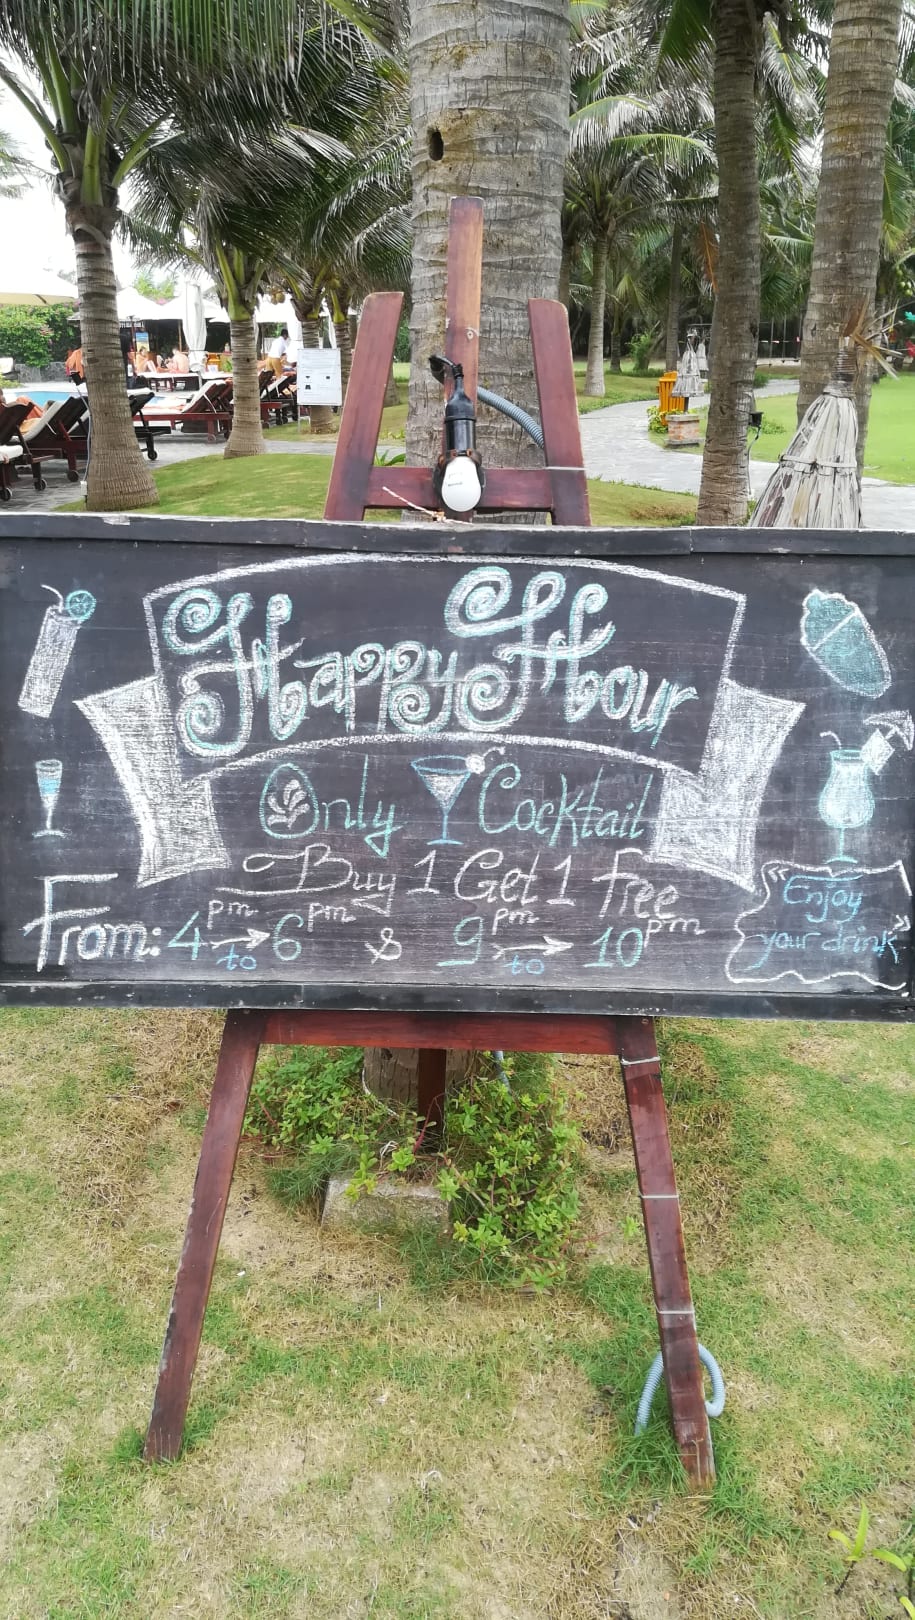 Happy Hour
Only Cocktail
Buy 1 Get 1 Free
From: 4 pm to 6 pm & 9 pm to 10 pm
Enjoy
your drink